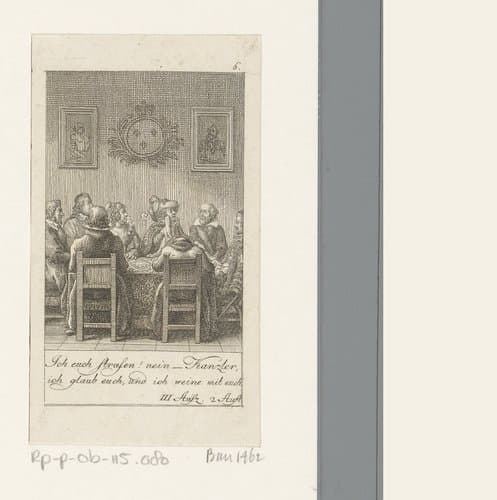 6.
Ich euch strafen! nein — Kanzler,
ich glaub euch, und ich weine mit euch
III Aufz. 2 Auft
RP-P-OB-115.080